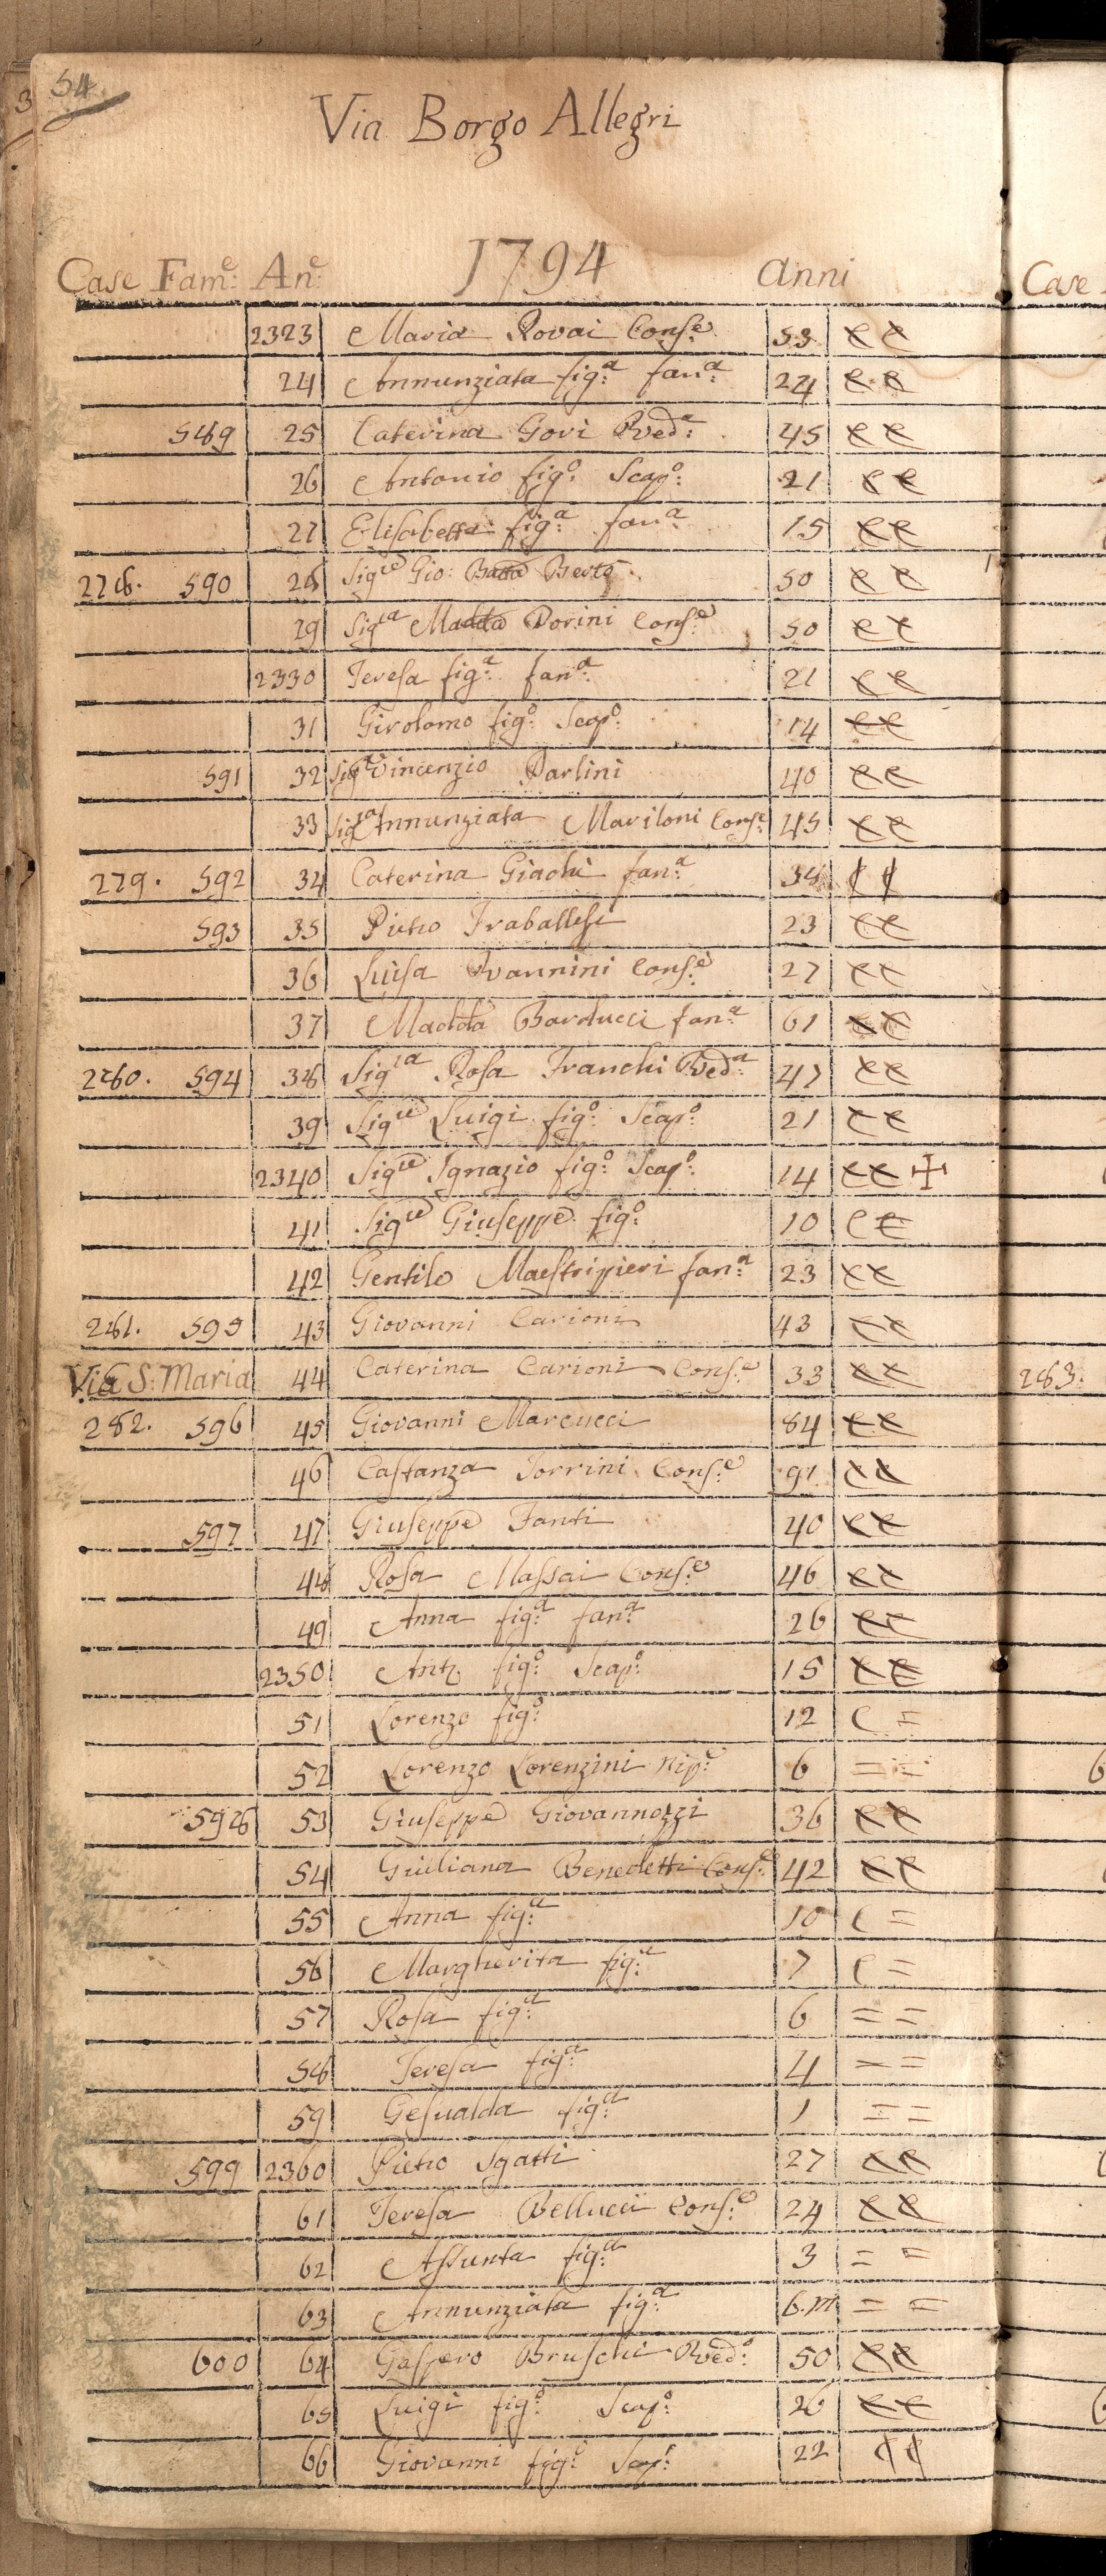 54
Via Borgo Allegri
1794
Case Fam:e An:e anni
2323 Maria Rovai Cons:e 53
24 Annunziata fig:a fan:a 24
589 25 Caterina Govi Ved:a 45
26 Antonio fig:o Scap:o 21
27 Elisabetta fig:a fan:a 15
278. 590 28 Sig:re Gio: Batta Berto 50
29 Sig:ra Madda Dorini Cons:e 50
2330 Teresa fig:a fan:a 21
31 Girolamo fig:o Scap:o 14
591 32 Sig:re Vincenzio Parlini 40
33 Sig:ra Annunziata Mariloni Cons:e 45
279. 592 34 Caterina Giachi fan:a 38
593 35 Pietro Traballesi 23
36 Luisa Vannini Cons:e 27
37 Madda Barducci fan:a 61
280. 594 38 Sig:ra Rosa Franchi Ved:a 47
39 Sig:re Luigi fig:o Scap:o 21
2340 Sig:re Ignazio fig:o Scap:o 14
41 Sig:re Giuseppe fig:o 10
42 Gentile Maestripieri fan:a 23
281. 595 43 Giovanni Carioni 43
Via S: Maria 44 Caterina Carioni Cons:e 33
282. 596 45 Giovanni Marcucci 84
46 Castanza Torrini Cons:e 91
597 47 Giuseppe Fanti 40
48 Rosa Massai Cons:e 46
49 Anna fig:a fan:a 26
2350 Ant. fig:o Scap:o 15
51 Lorenzo fig:o 12
52 Lorenzo Lorenzini Nip:e 6
598 53 Giuseppe Giovannozzi 36
54 Giuliana Benedetti Cons:e 42
55 Anna fig:a 10
56 Margherita fig:a 7
57 Rosa fig:a 6
58 Teresa fig:a 4
59 Gesualda fig:a 1
599 2360 Pietro Sgatti 27
61 Teresa Bellucci Cons:e 24
62 Assunta fig:a 3
63 Annunziata fig:a 6.m
600 64 Gaspero Bruschi Ved:o 50
65 Luigi fig:o Scap:o 26
66 Giovanni fig:o Scap:o 22
Case
283.